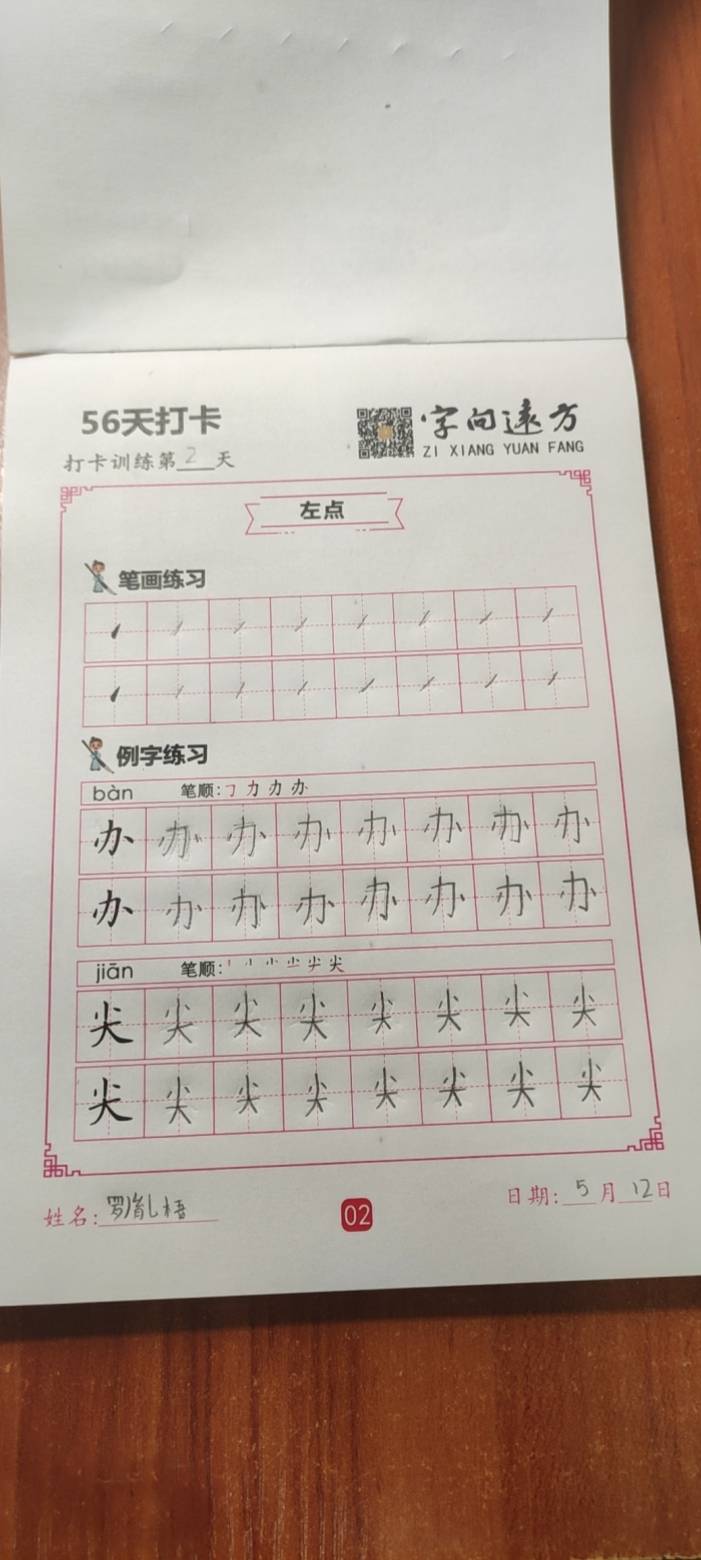 56天打卡
字向远方
ZI XIANG YUAN FANG
打卡训练第2天
左点
笔画练习
例字练习
bàn 笔顺:㇆力力办
办办办办办办办办
办办办办办办办办
jiān 笔顺:尖
尖尖尖尖尖尖尖尖
尖尖尖尖尖尖尖尖
姓名:罗胤梧
02
日期:5月12日